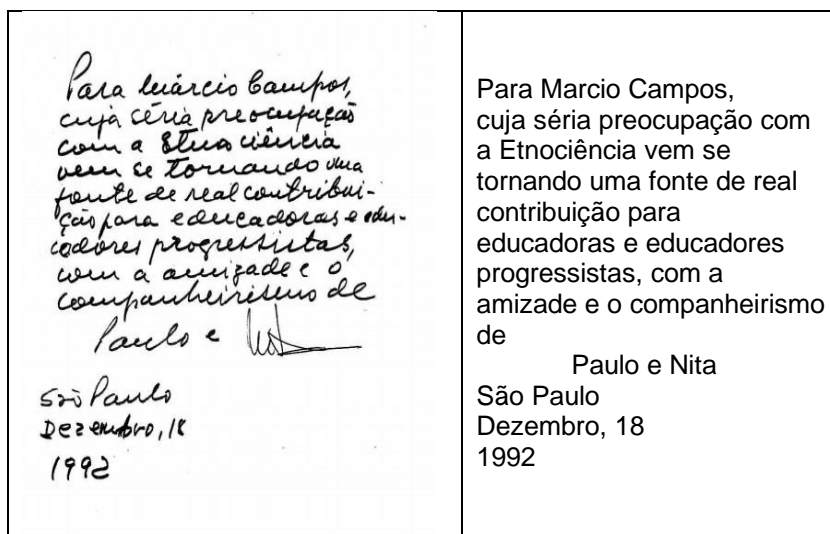 Para Márcio Campos,
cuja séria preocupação
com a Etnociência
vem se tornando uma
fonte de real contribui-
ção para educadoras e edu-
cadores progressistas,
com a amizade e o
companheirismo de
Paulo e Nita
São Paulo
Dezembro, 18
1992
Para Marcio Campos,
cuja séria preocupação com
a Etnociência vem se
tornando uma fonte de real
contribuição para
educadoras e educadores
progressistas, com a
amizade e o companheirismo
de
Paulo e Nita
São Paulo
Dezembro, 18
1992